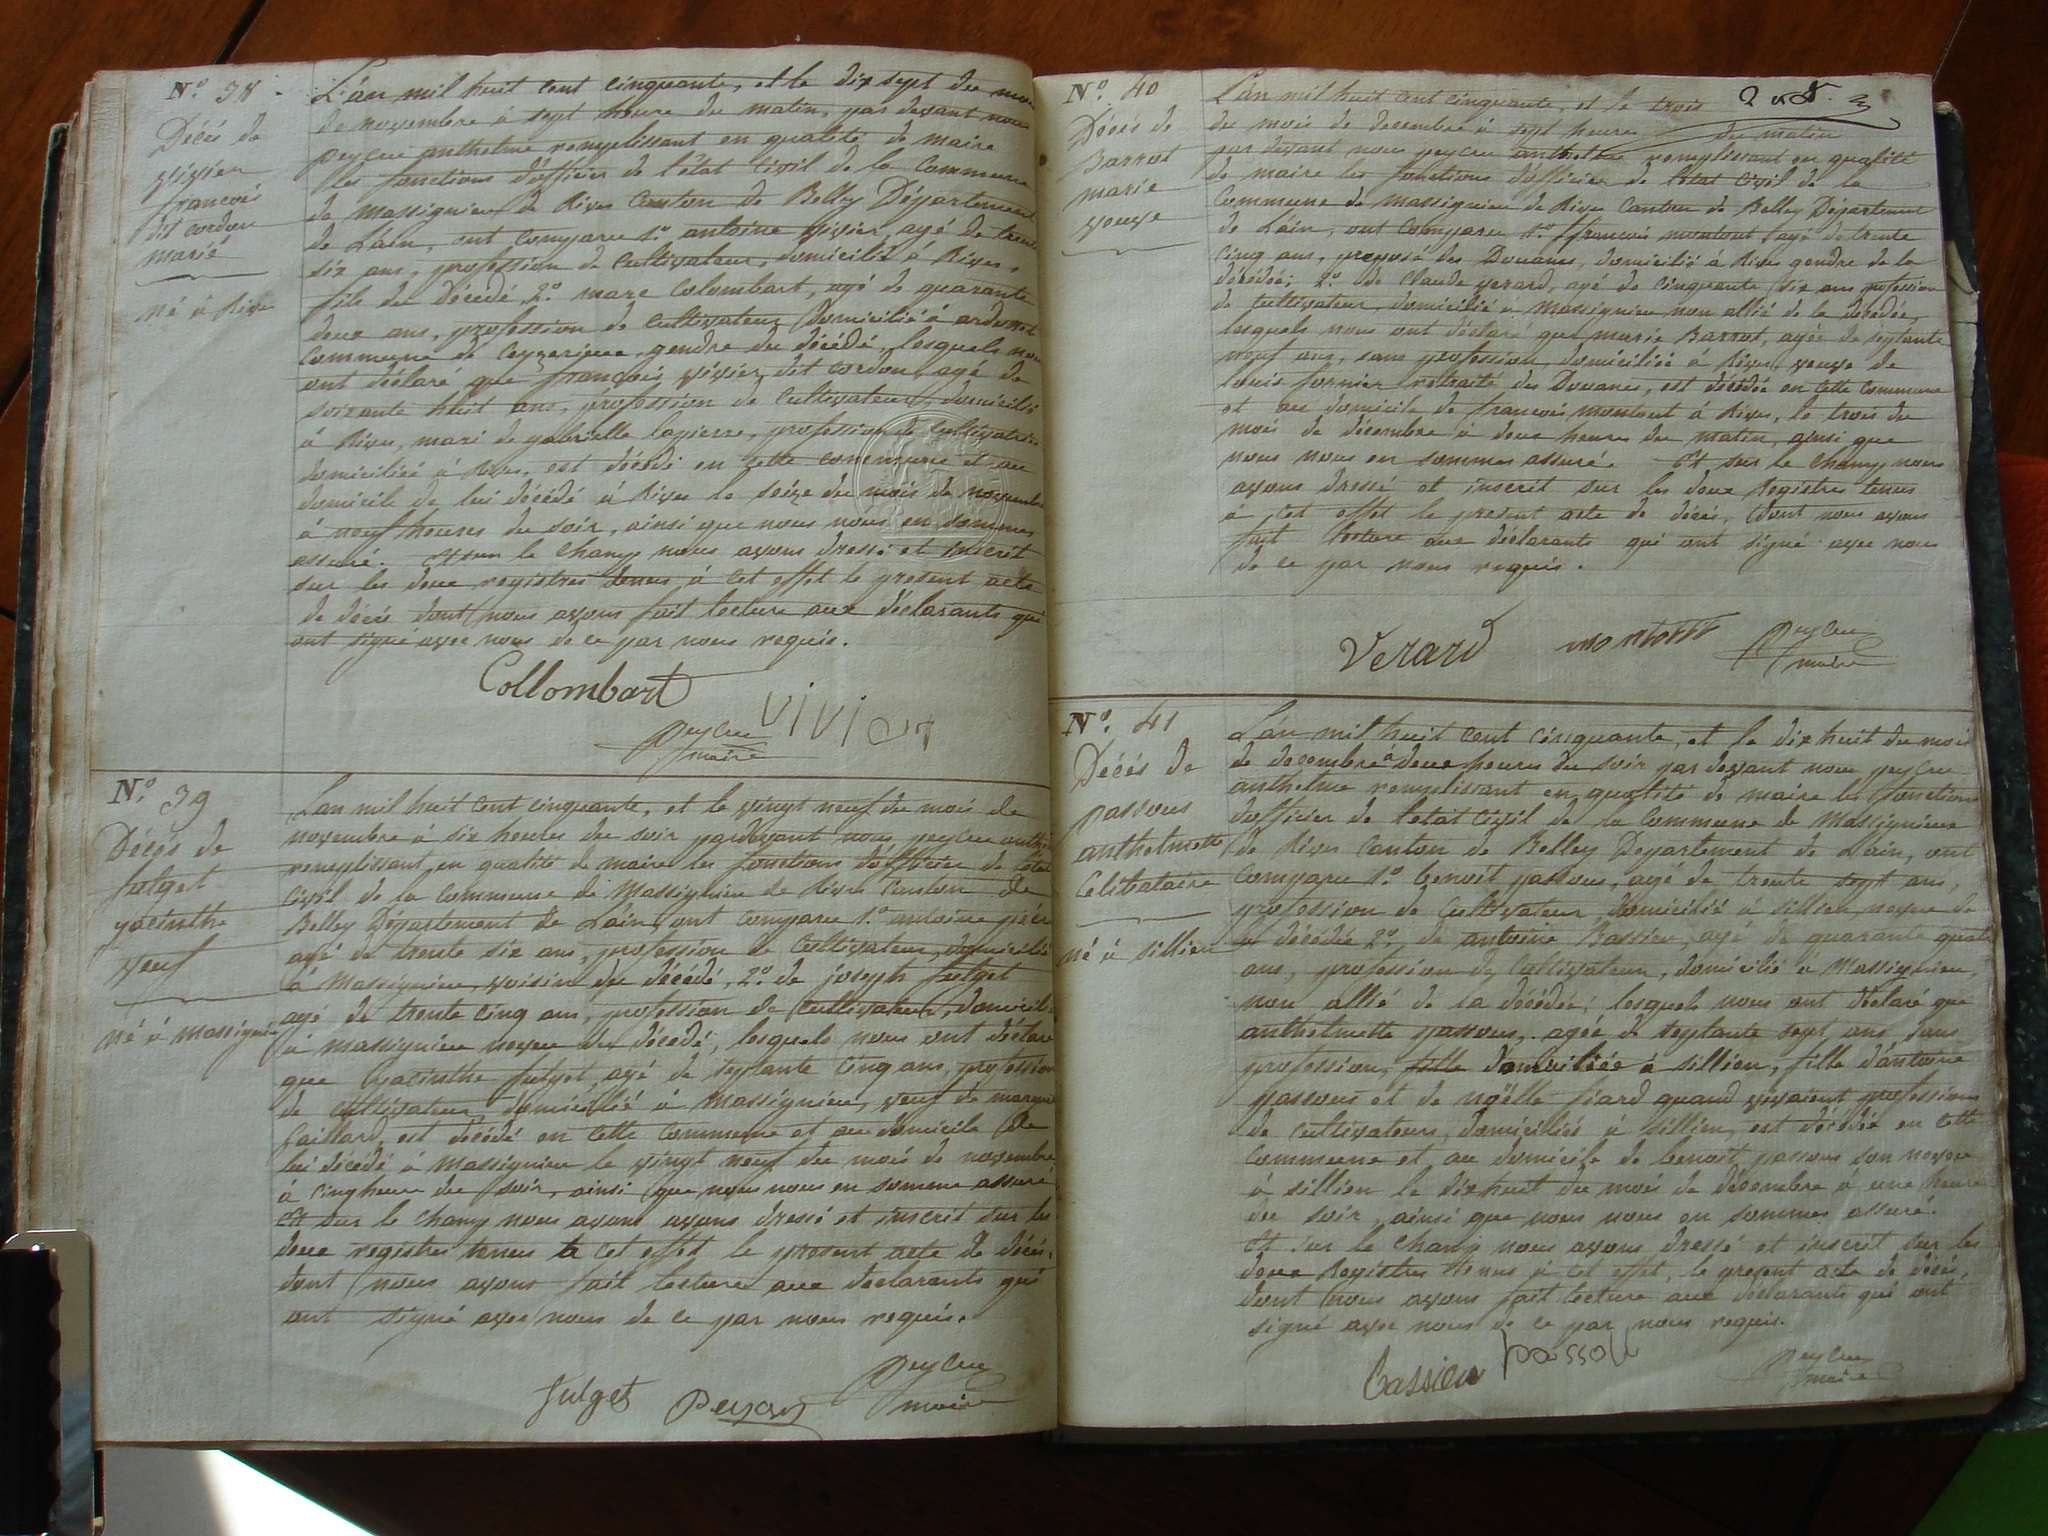 N.º 38
Décés de
vivier
francois
dit cordon
marié
né à Rives
L'án mil huit cent cinquante, et le dix sept du mois
de novembre à sept heure du matin, par devant nous
peyCru anthelme remplissant en qualité de maire
les fonctions d'officier de l'état Civil de la Commune
de massignieu de Rives Canton de Belley Département
de Láin, ont Comparu 1.º antoine vivier, agé de trente
six ans, profession de Cultivateur, domicilié à Rives,
fils du décédé 2.º marc Colombart, agé de quarante
deux ans, profession de Cultivateur domicilié à ardosset
Commune de Ceyzerieux, gendre du décédé, lesquels nous
ont déclaré que françois vivier dit cordon, agé de
soixante huit ans, profession de Cultivateur domicilié
à Rives, mari de gabrielle lapierre, profession de Cultivatrice
domiciliée à Rives, est décédé en cette commune et au
domicile de lui décédé à Rives le seize du mois de novembre
à neuf heures du soir, ainsi que nous nous en sommes
assuré. et sur le Champ nous avons dressé et inscrit
sur les deux registres tenus à cet effet le présent acte
de décés dont nous avons fait lecture aux déclarants qui
ont signé avec nous de ce par nous requis.
Collombart
vivier
peyCru
maire
N.º 39
Décés de
fulget
yacinthe
veuf
né à massignieu
L'an mil huit Cent Cinquante, et le vingt neuf du mois de
novembre à six heures du soir pardevant nous peyCru anthelme
remplissant en qualité de maire les fonctions d'officier de létat
Civil de la Commune de Massignieu de Rives Canton de
Belley Département de Láin, ont comparu 1.º antoine
agé de trente six ans, profession de Cultivateur, domicilié
à Massignieu, voisin du décédé, 2.º de joseph fulget
agé de trente cinq ans, profession de Cultivateur, domicilié
à massignieu neveu du décédé, lesquels nous ont déclaré
que yacinthe fulget, agé de septante cinq ans, profession
de Cultivateur domicilié à Massignieu, veuf de
Gaillard, est décédé en cette Commune et au domicile de
lui décédé à Massignieu le vingt neuf du mois de novembre
à cinq heure du soir, ainsi que nous nous en somme assuré
Et sur le champ nous avons avons dressé et inscrit sur les
deux registres tenus à cet effet le présent acte de décés.
dont nous avons fait lecture aux déclarants qui
ont signé avec nous de ce par nous requis.
fulget
peyCru
maire
N.º 40
Décés de
Barrot
marie
veuve
L'án mil huit cent cinquante, et le trois
du mois de decembre à sept heure du matin
par devant nous peycru anthelme remplissant en qualité
de maire les fonctions d'officier de l'état Civil de la
Commune de massignieu de Rives Canton de Belley Département
de Láin, ont Comparu 1.º françois montout agé de trente
cinq ans, préposé des Douanes, domicilié à Rives gendre de la
décédée; 2.º de Claude verard, agé de cinquante six ans profession
de Cultivateur, domicilié à Massignieu non allié de la décédée,
lesquels nous ont déclaré que marie Barrot, agée de septante
neuf ans, sans profession, domiciliée à Rives, veuve de
louis fornier retraité des Douanes, est décédée en cette Commune
et au domicile de francois montout à Rives, le trois du
mois de décembre à deux heures du matin, ainsi que
nous nous en sommes assuré. Et sur le champ nous
avons dressé et inscrit sur les deux Registres tenus
à cet effet le present acte de décés, dont nous avons
fait lecture aux déclarants qui ont signé avec nous
de ce par nous requis.
Verard
peyCru
maire
N.º 41
Décés de
passous
anthelmette
Célibataire
né à sillien
L'án mil huit cent cinquante, et le dix huit du mois
de decembre à deux heures du soir par devant nous peycru
anthelme remplissant en qualité de maire les fonctions
d'officier de l'état Civil de la Commune de Massignieu
de Rives Canton de Belley Département de Lain, ont
Comparu 1.º benoit passous, agé de trente sept ans,
profession de Cultivateur, domicilié à sillien neveu de
la décédée 2.º de antoine Bassieu, agé de quarante quatre
ans, profession de Cultivateur, domicilié à Massignieu,
non allié de la décédée; lesquels nous ont déclaré que
anthelmette passous, agée de septante sept ans, sans
profession, fille domiciliée à sillien, fille d'antoine
passous et de noëlle fiard quand vivaient profession
de cultivateurs, domiciliés à sillien, est décédée en cette
Commune et au domicile de benoit passous son neveu
à sillien le dix huit du mois de décembre à une heure
du soir, ainsi que nous nous en sommes assuré.
Et sur le champ nous avons dressé et inscrit sur les
deux Registres tenus à cet effet, le présent acte de décés,
dont nous avons fait lecture aux déclarants qui ont
signé avec nous de ce par nous requis.
passou
peyCru
maire